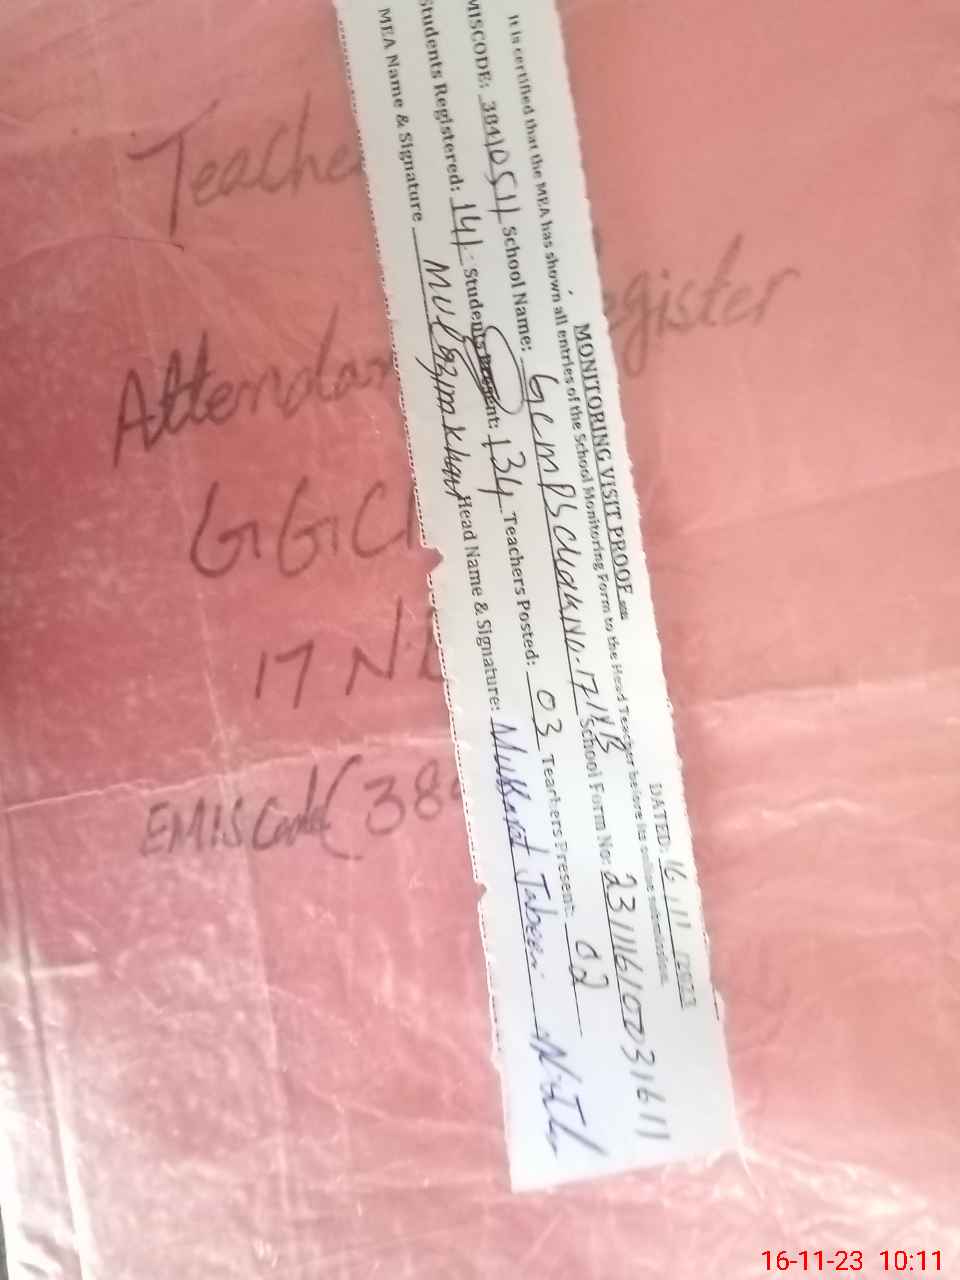 MONITORING VISIT PROOF
DATED: 16/11/2023
It is certified that the MEA has shown all entries of the School Monitoring Form to the Head Teacher before its online submission.
MISCODE: 38410511 School Name: GCMPS Chak No. 17/NB School Form No:
Students Registered: 141 Students Present: 134 Teachers Posted: 03 Teachers Present: 02
MEA Name & Signature Head Name & Signature: Mussarat Jabeen
Teache
Attendan egister
GGC
17 N
EMIS Code (38
16-11-23 10:11